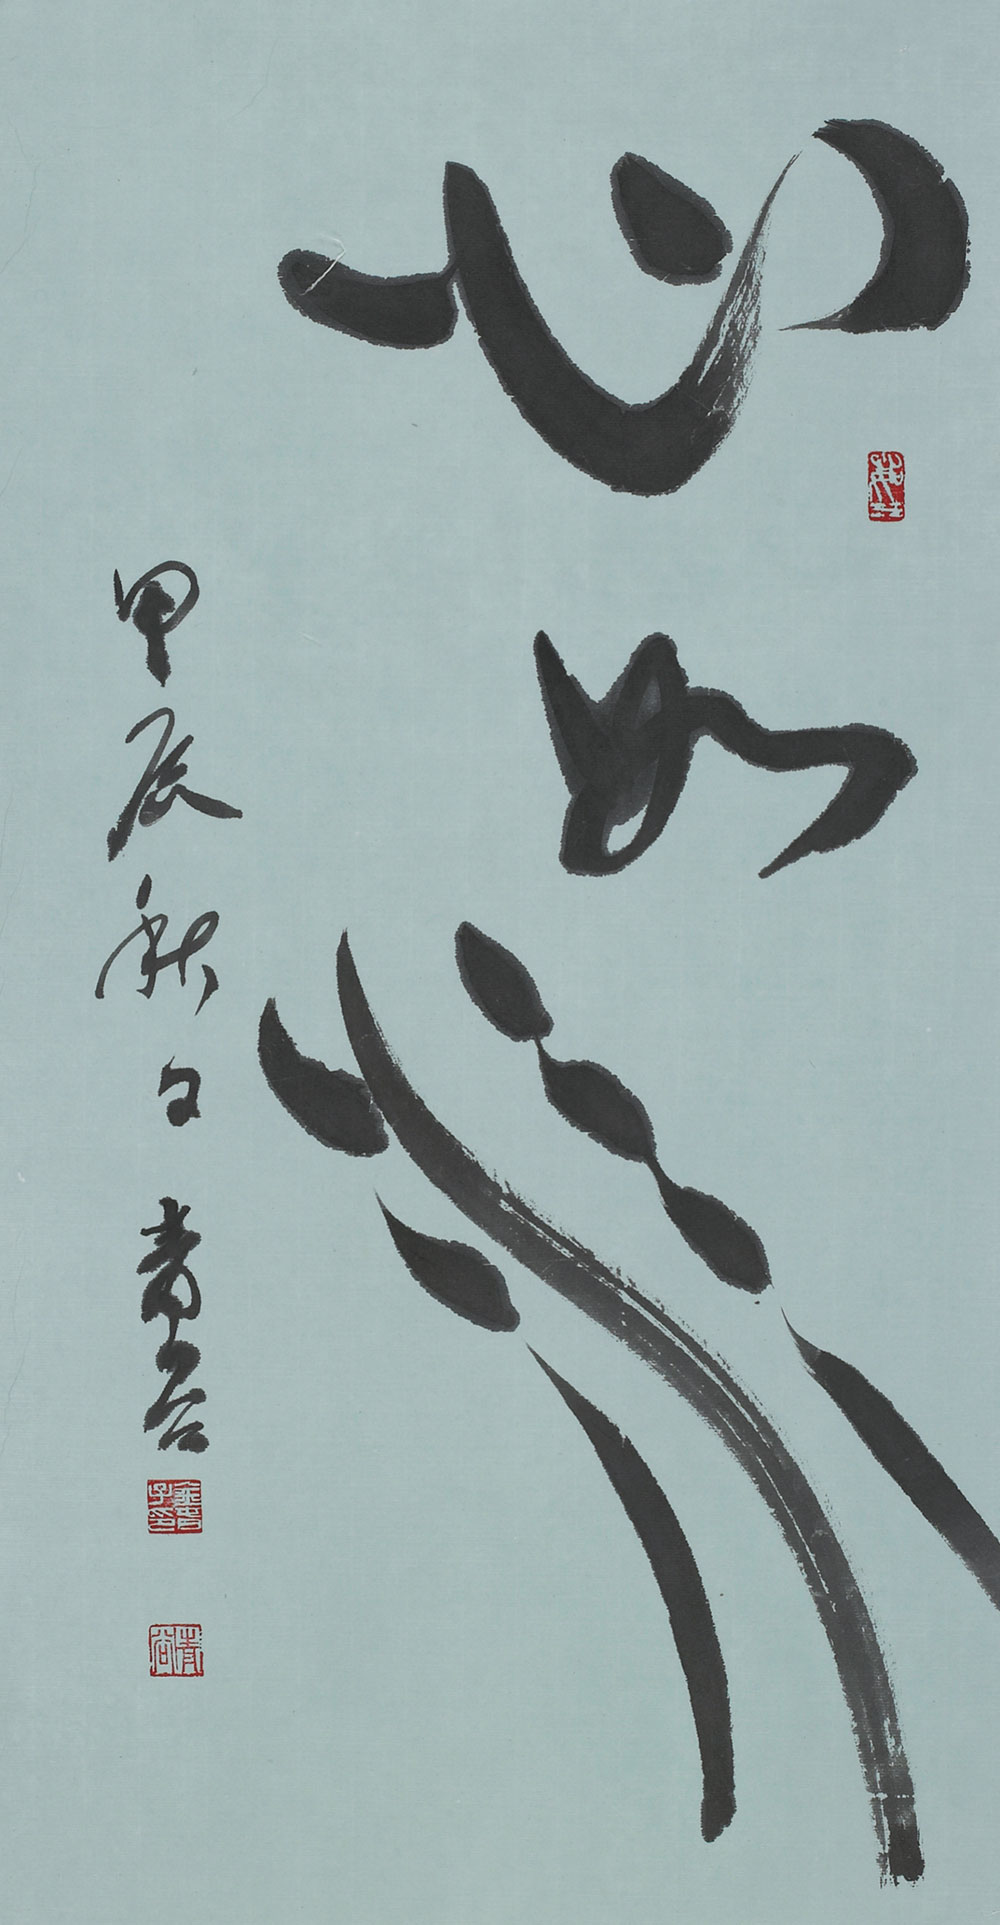 心如水
甲辰秋日 青谷
青谷